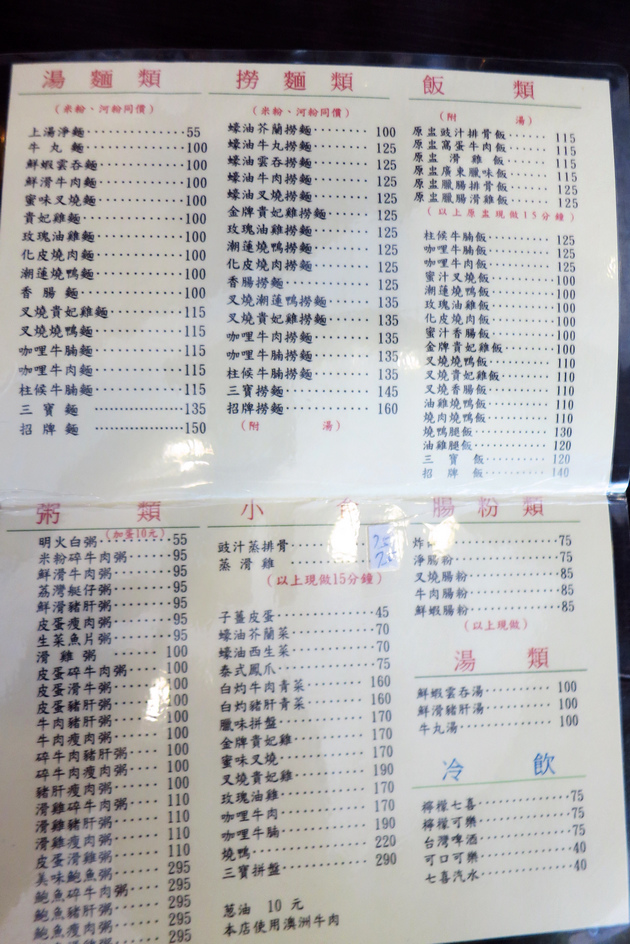 湯麵類
(米粉、河粉同價)
上湯淨麵 55
牛丸麵 100
鮮蝦雲吞麵 100
鮮滑牛肉麵 100
蜜味叉燒麵 100
貴妃雞麵 100
玫瑰油雞麵 100
化皮燒肉麵 100
潮蓮燒鴨麵 100
香腸麵 100
叉燒貴妃雞麵 115
叉燒燒鴨麵 115
咖哩牛腩麵 115
咖哩牛肉麵 115
柱候牛腩麵 115
三寶麵 135
招牌麵 150
撈麵類
(米粉、河粉同價)
蠔油芥蘭撈麵 100
蠔油牛丸撈麵 125
蠔油雲吞撈麵 125
蠔油牛肉撈麵 125
蠔油叉燒撈麵 125
金牌貴妃雞撈麵 125
玫瑰油雞撈麵 125
潮蓮燒鴨撈麵 125
化皮燒肉撈麵 125
香腸撈麵 125
叉燒潮蓮燒鴨撈麵 135
叉燒貴妃雞撈麵 135
咖哩牛肉撈麵 135
咖哩牛腩撈麵 135
柱候牛腩撈麵 135
三寶撈麵 145
招牌撈麵 160
(附湯)
飯類
(附湯)
原盅豉汁排骨飯 115
原盅窩蛋牛肉飯 115
原盅滑雞飯 115
原盅廣東臘味飯 115
原盅臘腸排骨飯 125
原盅臘腸滑雞飯 125
(以上原盅現做15分鐘)
柱候牛腩飯 125
咖哩牛腩飯 125
咖哩牛肉飯 125
蜜汁叉燒飯 100
潮蓮燒鴨飯 100
玫瑰油雞飯 100
化皮燒肉飯 100
蜜汁香腸飯 100
金牌貴妃雞飯 100
叉燒燒鴨飯 110
叉燒貴妃雞飯 110
叉燒香腸飯 110
油雞燒鴨飯 110
燒肉燒鴨飯 110
燒鴨腿飯 130
油雞腿飯 120
三寶飯 120
招牌飯 140
粥類
(加蛋10元)
明火白粥 55
米粉碎牛肉粥 95
鮮滑牛肉粥 95
荔灣艇仔粥 95
鮮滑豬肝粥 95
皮蛋瘦肉粥 95
生菜魚片粥 95
滑雞粥 100
皮蛋碎牛肉粥 100
皮蛋滑牛粥 100
皮蛋豬肝粥 100
牛肉豬肝粥 100
牛肉瘦肉粥 100
碎牛肉豬肝粥 100
碎牛肉瘦肉粥 100
豬肝瘦肉粥 100
滑雞碎牛肉粥 110
滑雞豬肝粥 110
滑雞瘦肉粥 110
皮蛋滑雞粥 110
美味鮑魚粥 295
鮑魚碎牛肉粥 295
鮑魚豬肝粥 295
鮑魚瘦肉粥 295
295
小
豉汁蒸排骨
蒸滑雞
(以上現做15分鐘)
子薑皮蛋 45
蠔油芥蘭菜 70
蠔油西生菜 70
泰式鳳爪 75
白灼牛肉青菜 160
白灼豬肝青菜 160
臘味拼盤 170
金牌貴妃雞 170
蜜味叉燒 170
叉燒貴妃雞 190
玫瑰油雞 170
咖哩牛肉 170
咖哩牛腩 190
燒鴨 220
三寶拼盤 290
蔥油 10元
本店使用澳洲牛肉
腸粉類
炸 75
淨腸粉 75
叉燒腸粉 85
牛肉腸粉 85
鮮蝦腸粉 85
(以上現做)
湯類
鮮蝦雲吞湯 100
鮮滑豬肝湯 100
牛丸湯 100
冷飲
檸檬七喜 75
檸檬可樂 75
台灣啤酒 75
可口可樂 40
七喜汽水 40